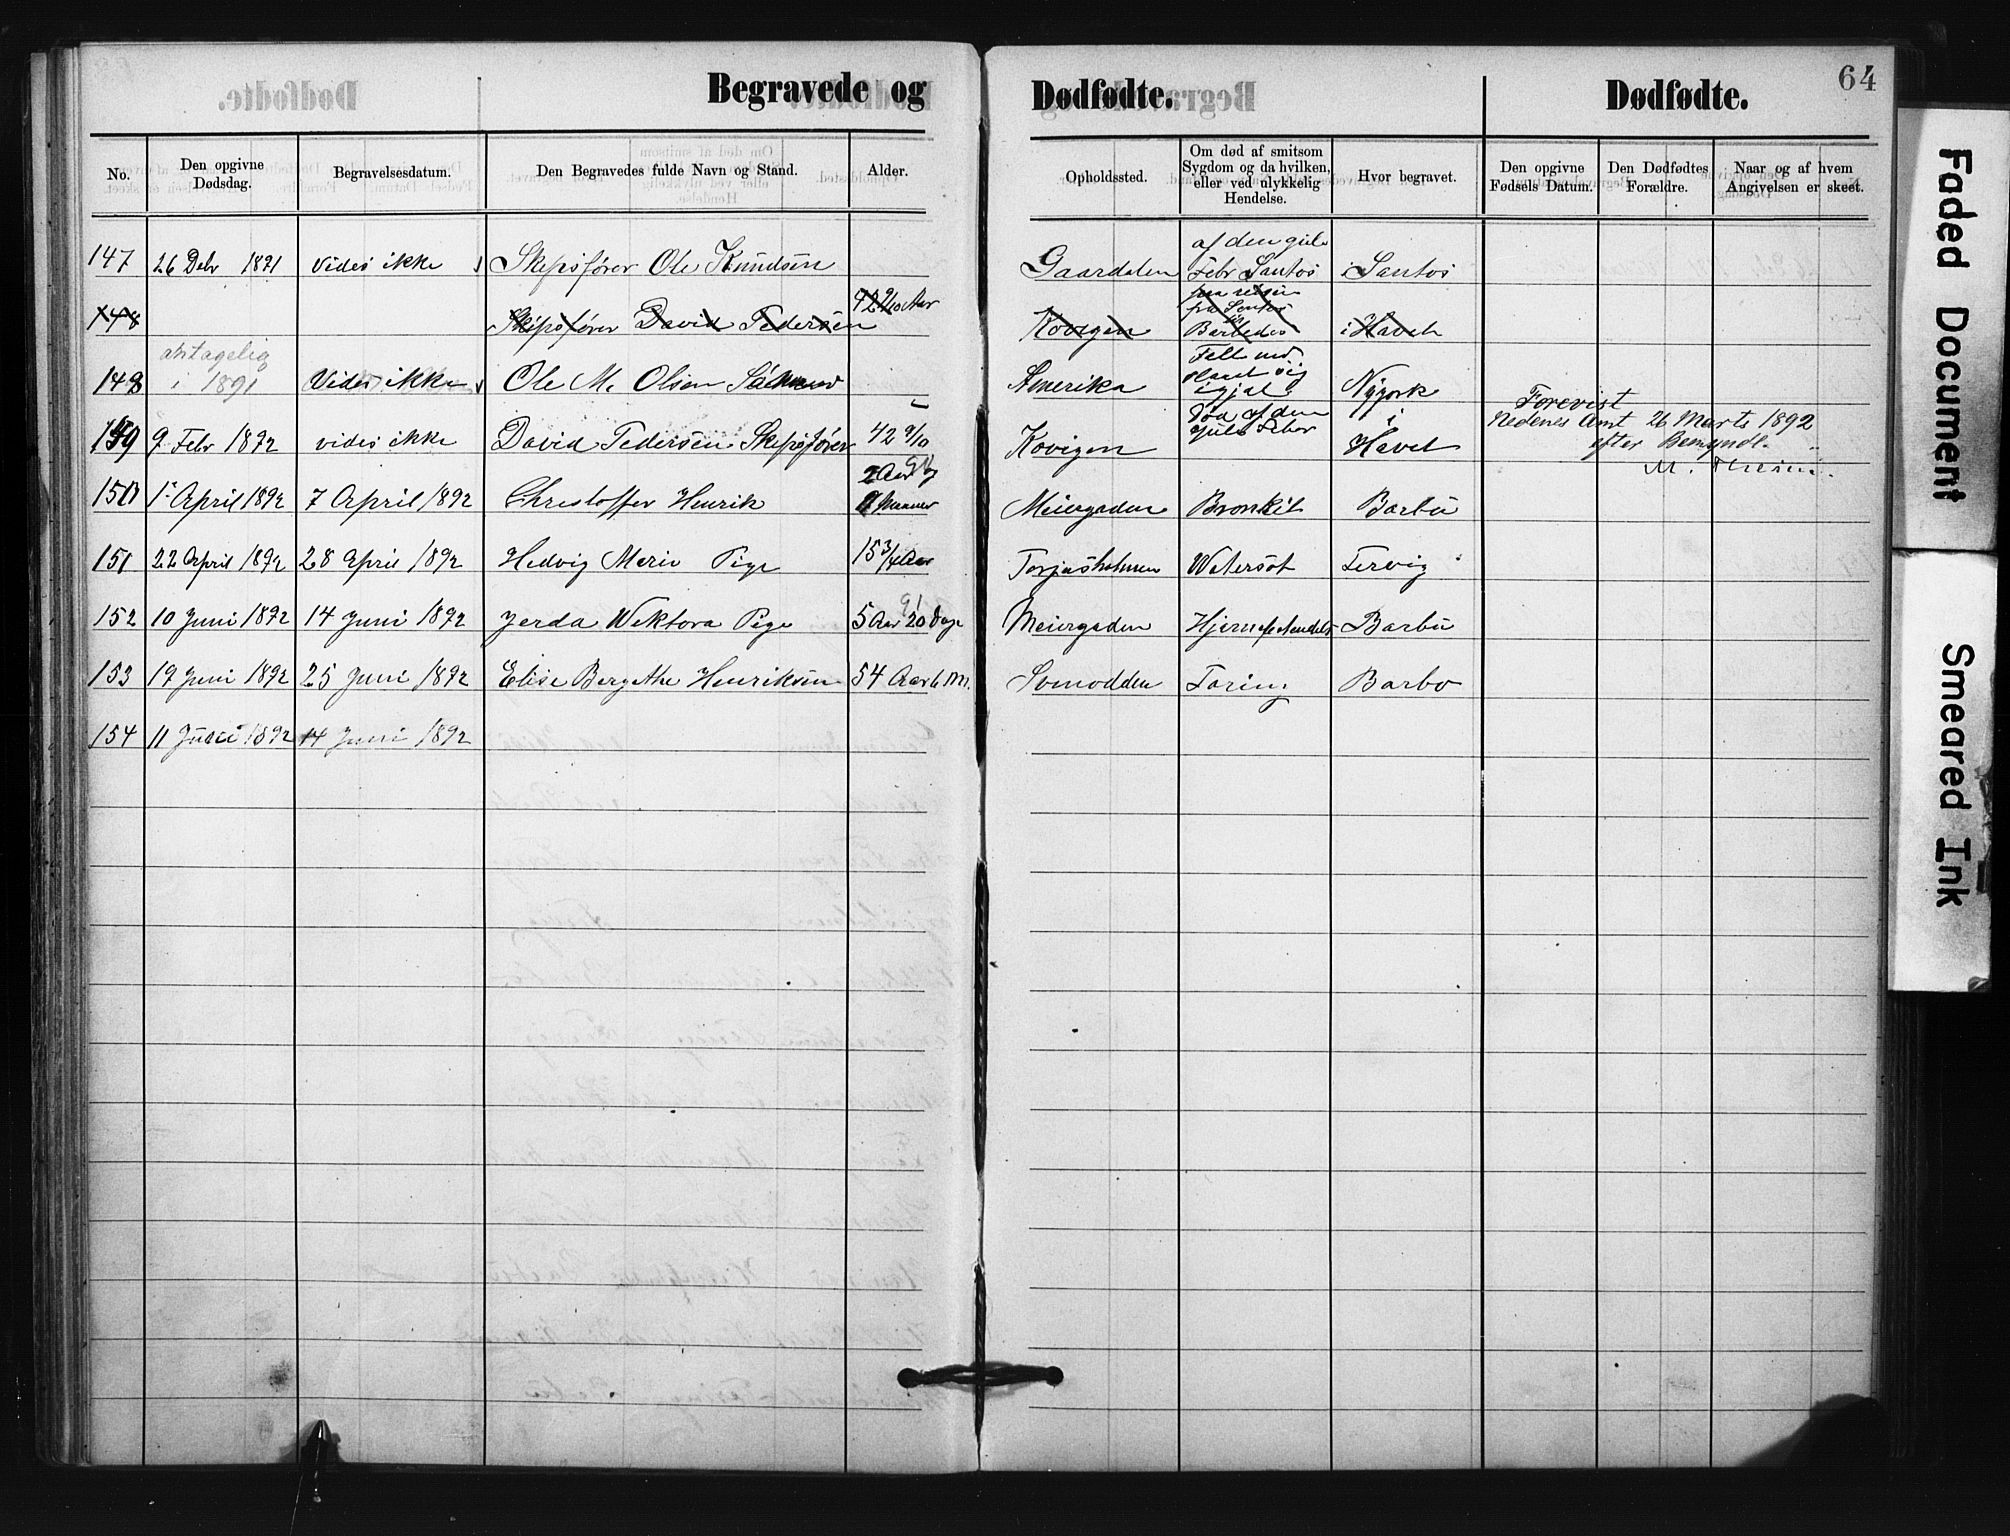 Begravede og Dødfødte. Dødfødte. 64
No. Den opgivne Dødsdag. Begravelsesdatum. Den Begravedes fulde Navn og Stand. Alder. Opholdssted. Om død af smitsom Sygdom og da hvilken, eller ved ulykkelig Hendelse. Hvor begravet. Den opgivne Fødsels Datum. Den Dødfødtes Forældre. Naar og af hvem Angivelsen er skeet.
147 26 Debr 1891 Vides ikke Skepsfører Ole Knudsen Gaardalen af den gule Febr Santos i Santos
148 Skipsfører David Pedersen 42 9/10 Aar Kovigen paa reisen fra Santos til Barbedos i Havet
148 antagelig i 1891 Vides ikke Ole M. Olsen Amerika Fell ned slaat sig igjæl Nyyork
149 9 Febr 1892 vides ikke David Pedersen Skepsfører 42 9/10 Kovigen Død af den gule Feber i Havet
Forevist
Nedenes Amt 26 Marts 1892
efter Bemyndl.
150 1 April 1892 7 April 1892 Christoffer Henrik 2 Aar og Meiergaden Bronkit Barbu
151 22 April 1892 28 April 1892 Hedvig Marie Pige 15 3/4 Aar Torjusholmen Watersot Tervig
152 10 Juni 1892 14 Juni 1892 Jerda Wektora Pige 5 Aar 20 Dage Meiergaden Barbu
153 19 Juni 1892 25 Juni 1892 Elise Bergethe Henriksen 54 Aar 6 M. Somodden Taring Barbo
154 11 Juni 1892 14 Juni 1892
Faded Document
Smeared Ink